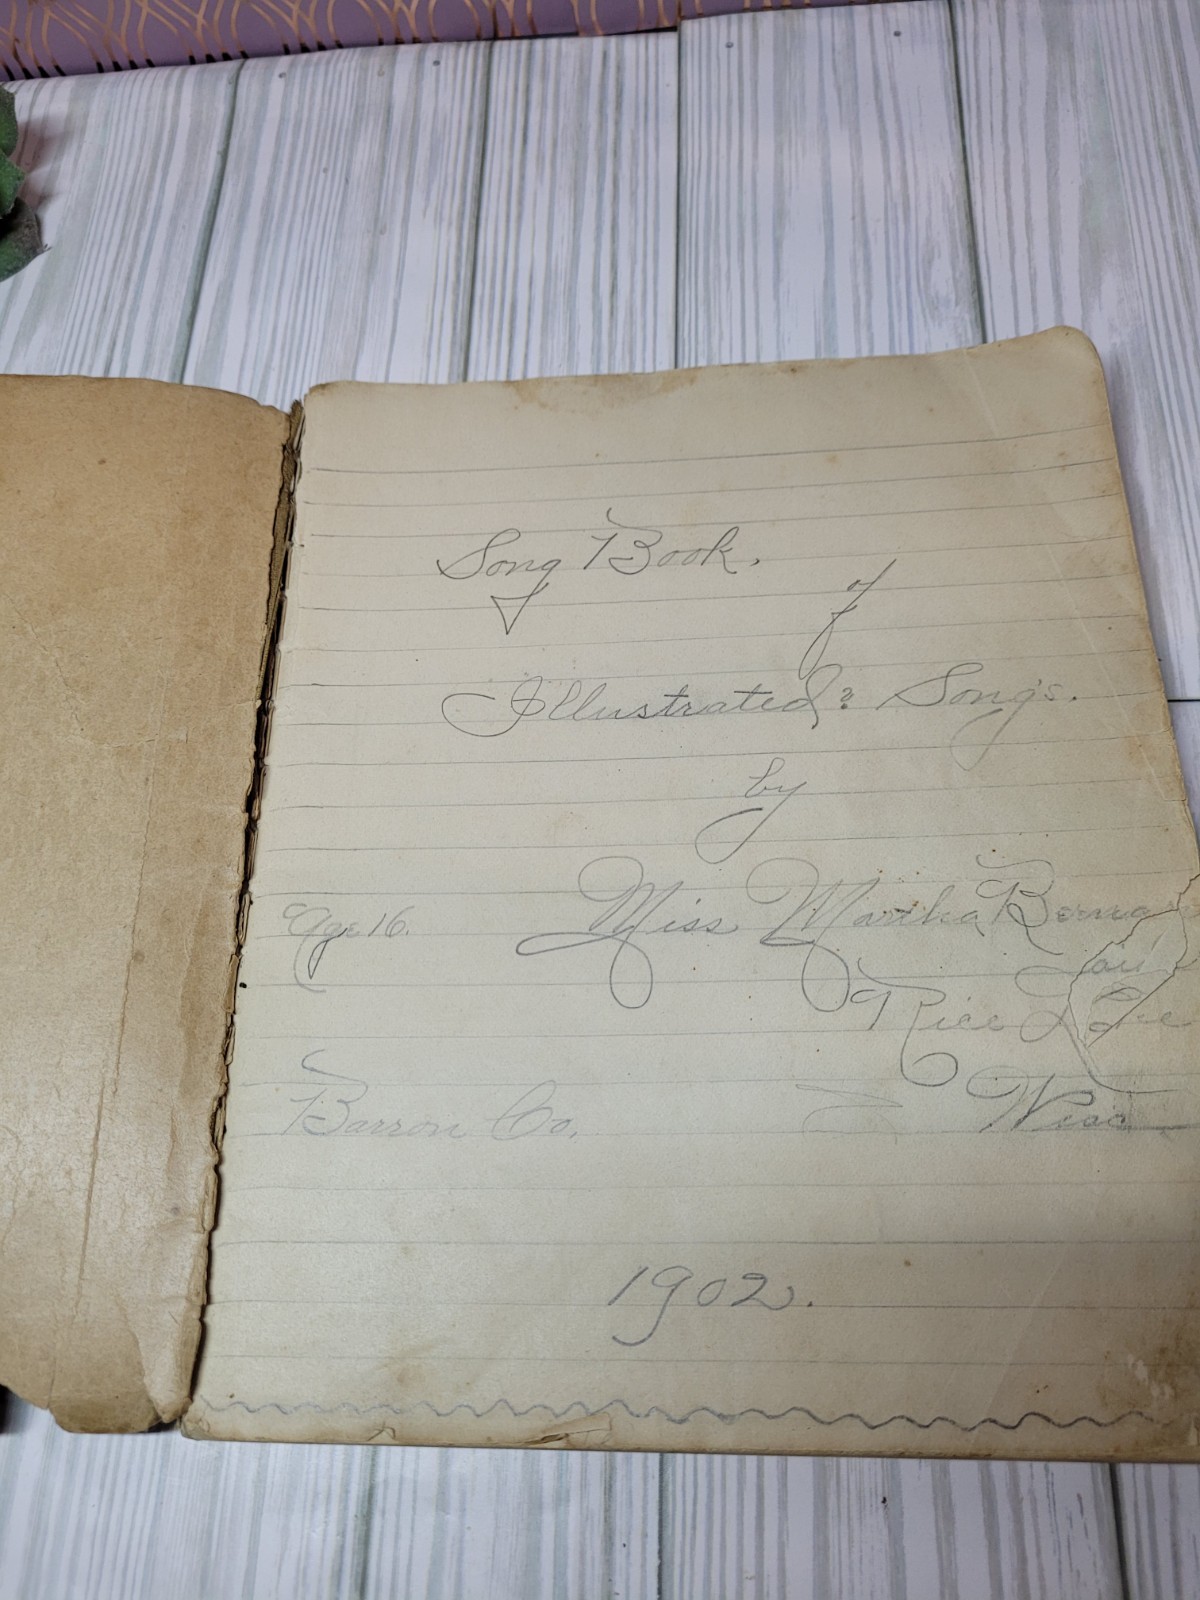 Song Book.
of
Illustrated? Songs.
by
Age 16. Miss Martha
Rice
Barron Co. Wisc
1902.